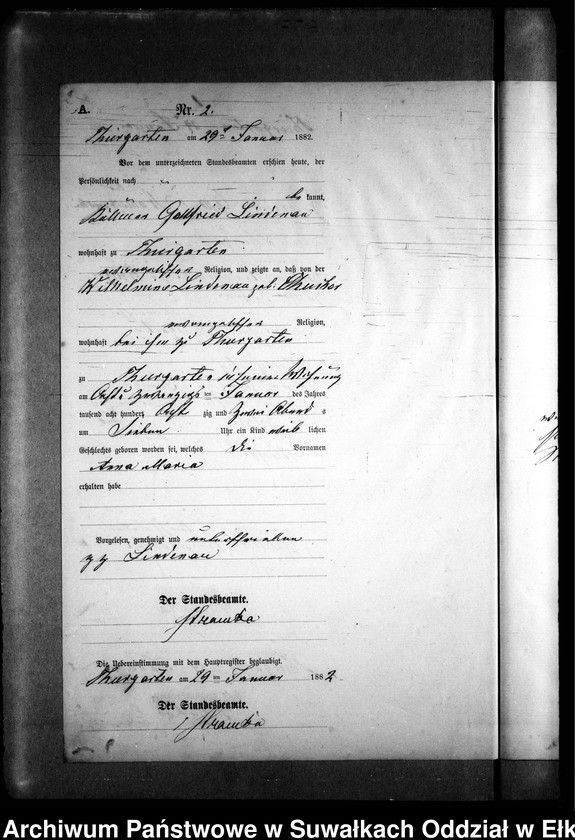 A. Nr. 2.
Thurgarten am 29t Januar 1882.
Vor dem unterzeichneten Standesbeamten erschien heute, der
Persönlichkeit nach
be kannt,
Gottfried Lindenau
wohnhaft zu Thurgarten
evangelischer Religion, und zeigte an, daß von der
Wilhelmine Lindenau geb.
evangelischer Religion,
wohnhaft bei ihm zu Thurgarten
zu Thurgarten in seiner Wohnung
am Acht u zwanzigsten Januar des Jahres
tausend acht hundert Acht zig und Zwei Abend s
um Sieben Uhr ein Kind weib lichen
Geschlechts geboren worden sei, welches die Vornamen
Anna Maria
erhalten habe
Vorgelesen, genehmigt und unterschrieben
gz Lindenau
Der Standesbeamte.
Die Uebereinstimmung mit dem Hauptregister beglaubigt.
Thurgarten am 29 ten Januar 1882
Der Standesbeamte.
Archiwum Państwowe w Suwałkach Oddział w Ełk